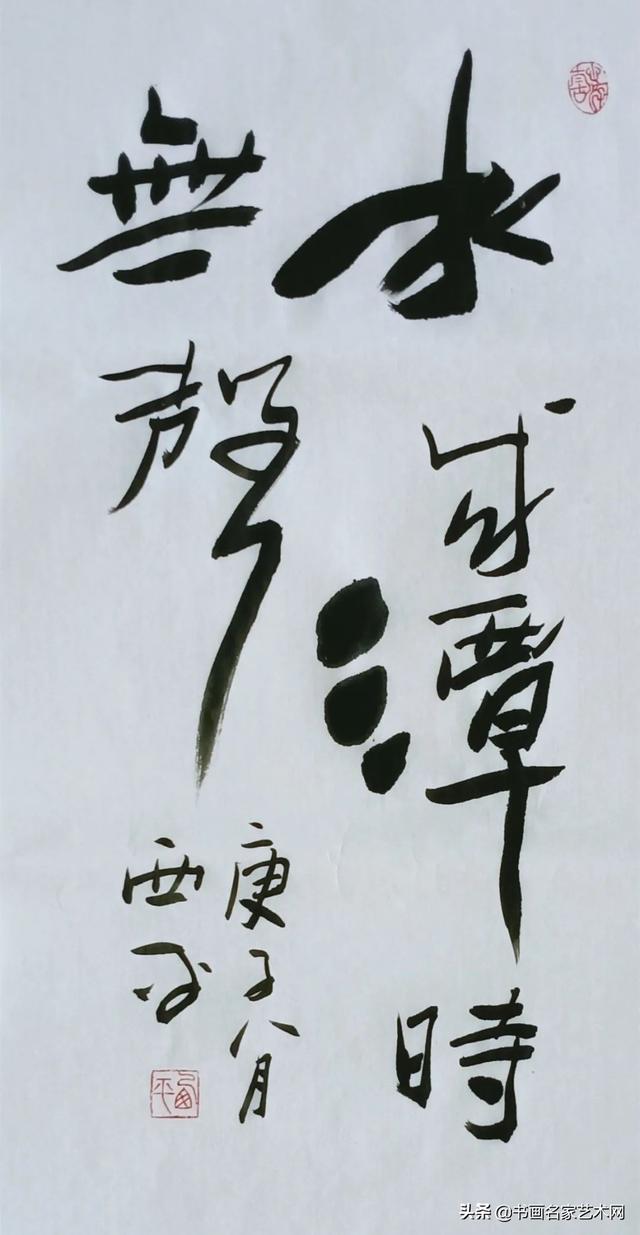 水成潭時
無聲
庚子八月
西平
頭条 @书画名家艺术网